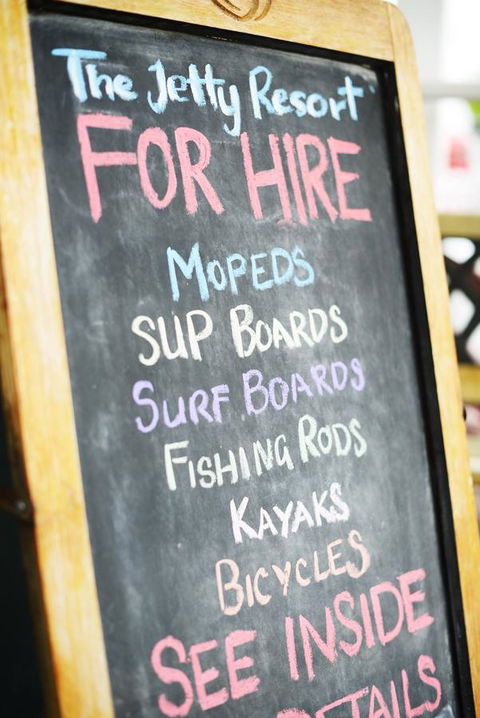 The Jetty Resort
FOR HIRE
MOPEDS
SUP BOARDS
SURF BOARDS
FISHING RODS
KAYAKS
BICYCLES
SEE INSIDE
DETAILS